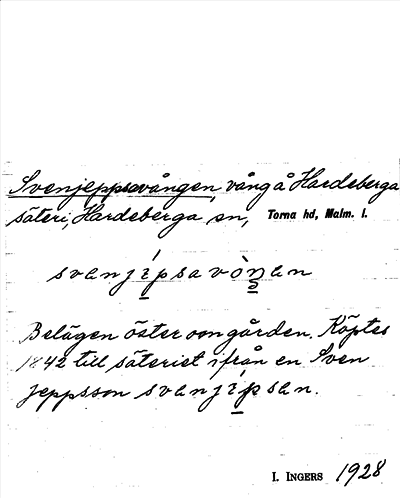 Svenjeppsavången, vång å Hardeberga
säteri, Hardeberga sn, Torna hd, Malm. l.
svanjípsavòŋan
Belägen öster om gården. Köptes
1842 till säteriet ifrån en Sven
Jeppsson svanjípsan.
I. INGERS 1928